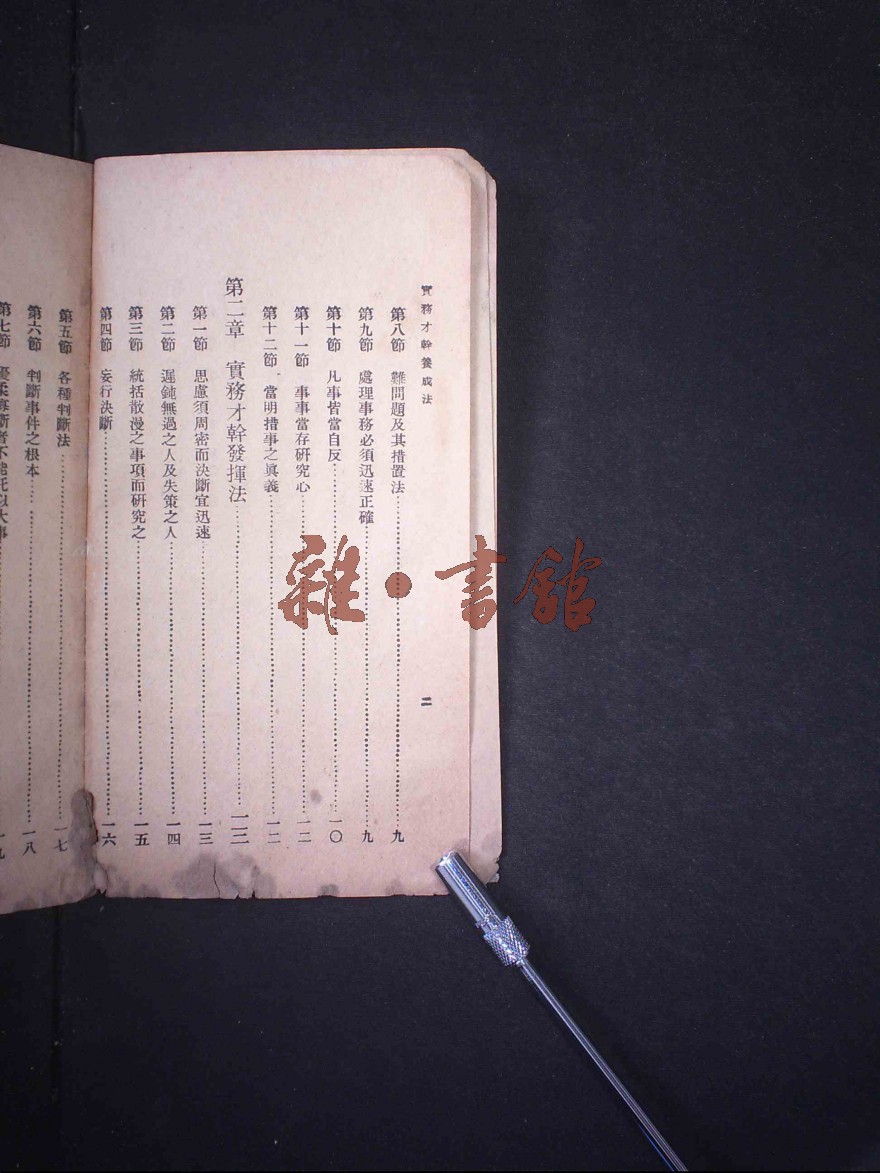 實務才幹養成法
二
第八節 難問題及其措置法 九
第九節 處理事務必須迅速正確 九
第十節 凡事皆當自反 一〇
第十一節 事事當存研究心 一二
第十二節 當明措事之眞義 一二
第二章 實務才幹發揮法 一三
第一節 思慮須周密而決斷宜迅速 一三
第二節 遲鈍無過之人及失策之人 一四
第三節 統括散漫之事項而研究之 一五
第四節 妄行決斷 一六
第五節 各種判斷法 一七
第六節 判斷事件之根本 一八
第七節 優柔寡斷者不能託以大事 一九
雜·書館